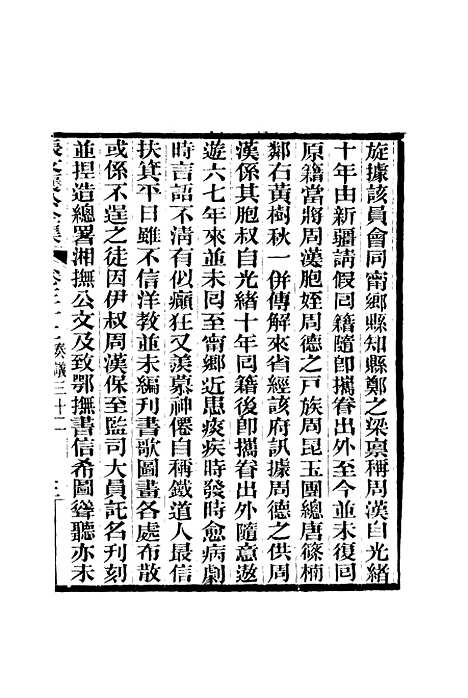 旋據該員會同甯鄉縣知縣鄭之梁禀稱周漢自光緒
十年由新疆請假囘籍隨卽攜眷出外至今並未復囘
原籍當將周漢胞姪周德之戸族周昆玉團總唐篠楠
鄰右黃樹秋一併傳解來省經該府訊據周德之供周
漢係其胞叔自光緒十年囘籍後卽攜眷出外隨意遨
遊六七年來並未囘至甯鄉近患痰疾時發時愈病劇
時言語不清有似癲狂又羨慕神僊自稱鐵道人最信
扶箕平日雖不信洋教並未編刊書歌圖畫各處布散
或係不逞之徒因伊叔周漢保至監司大員託名刊刻
並捏造總署湘撫公文及致鄂撫書信希圖聳聽亦未
奏議三十二